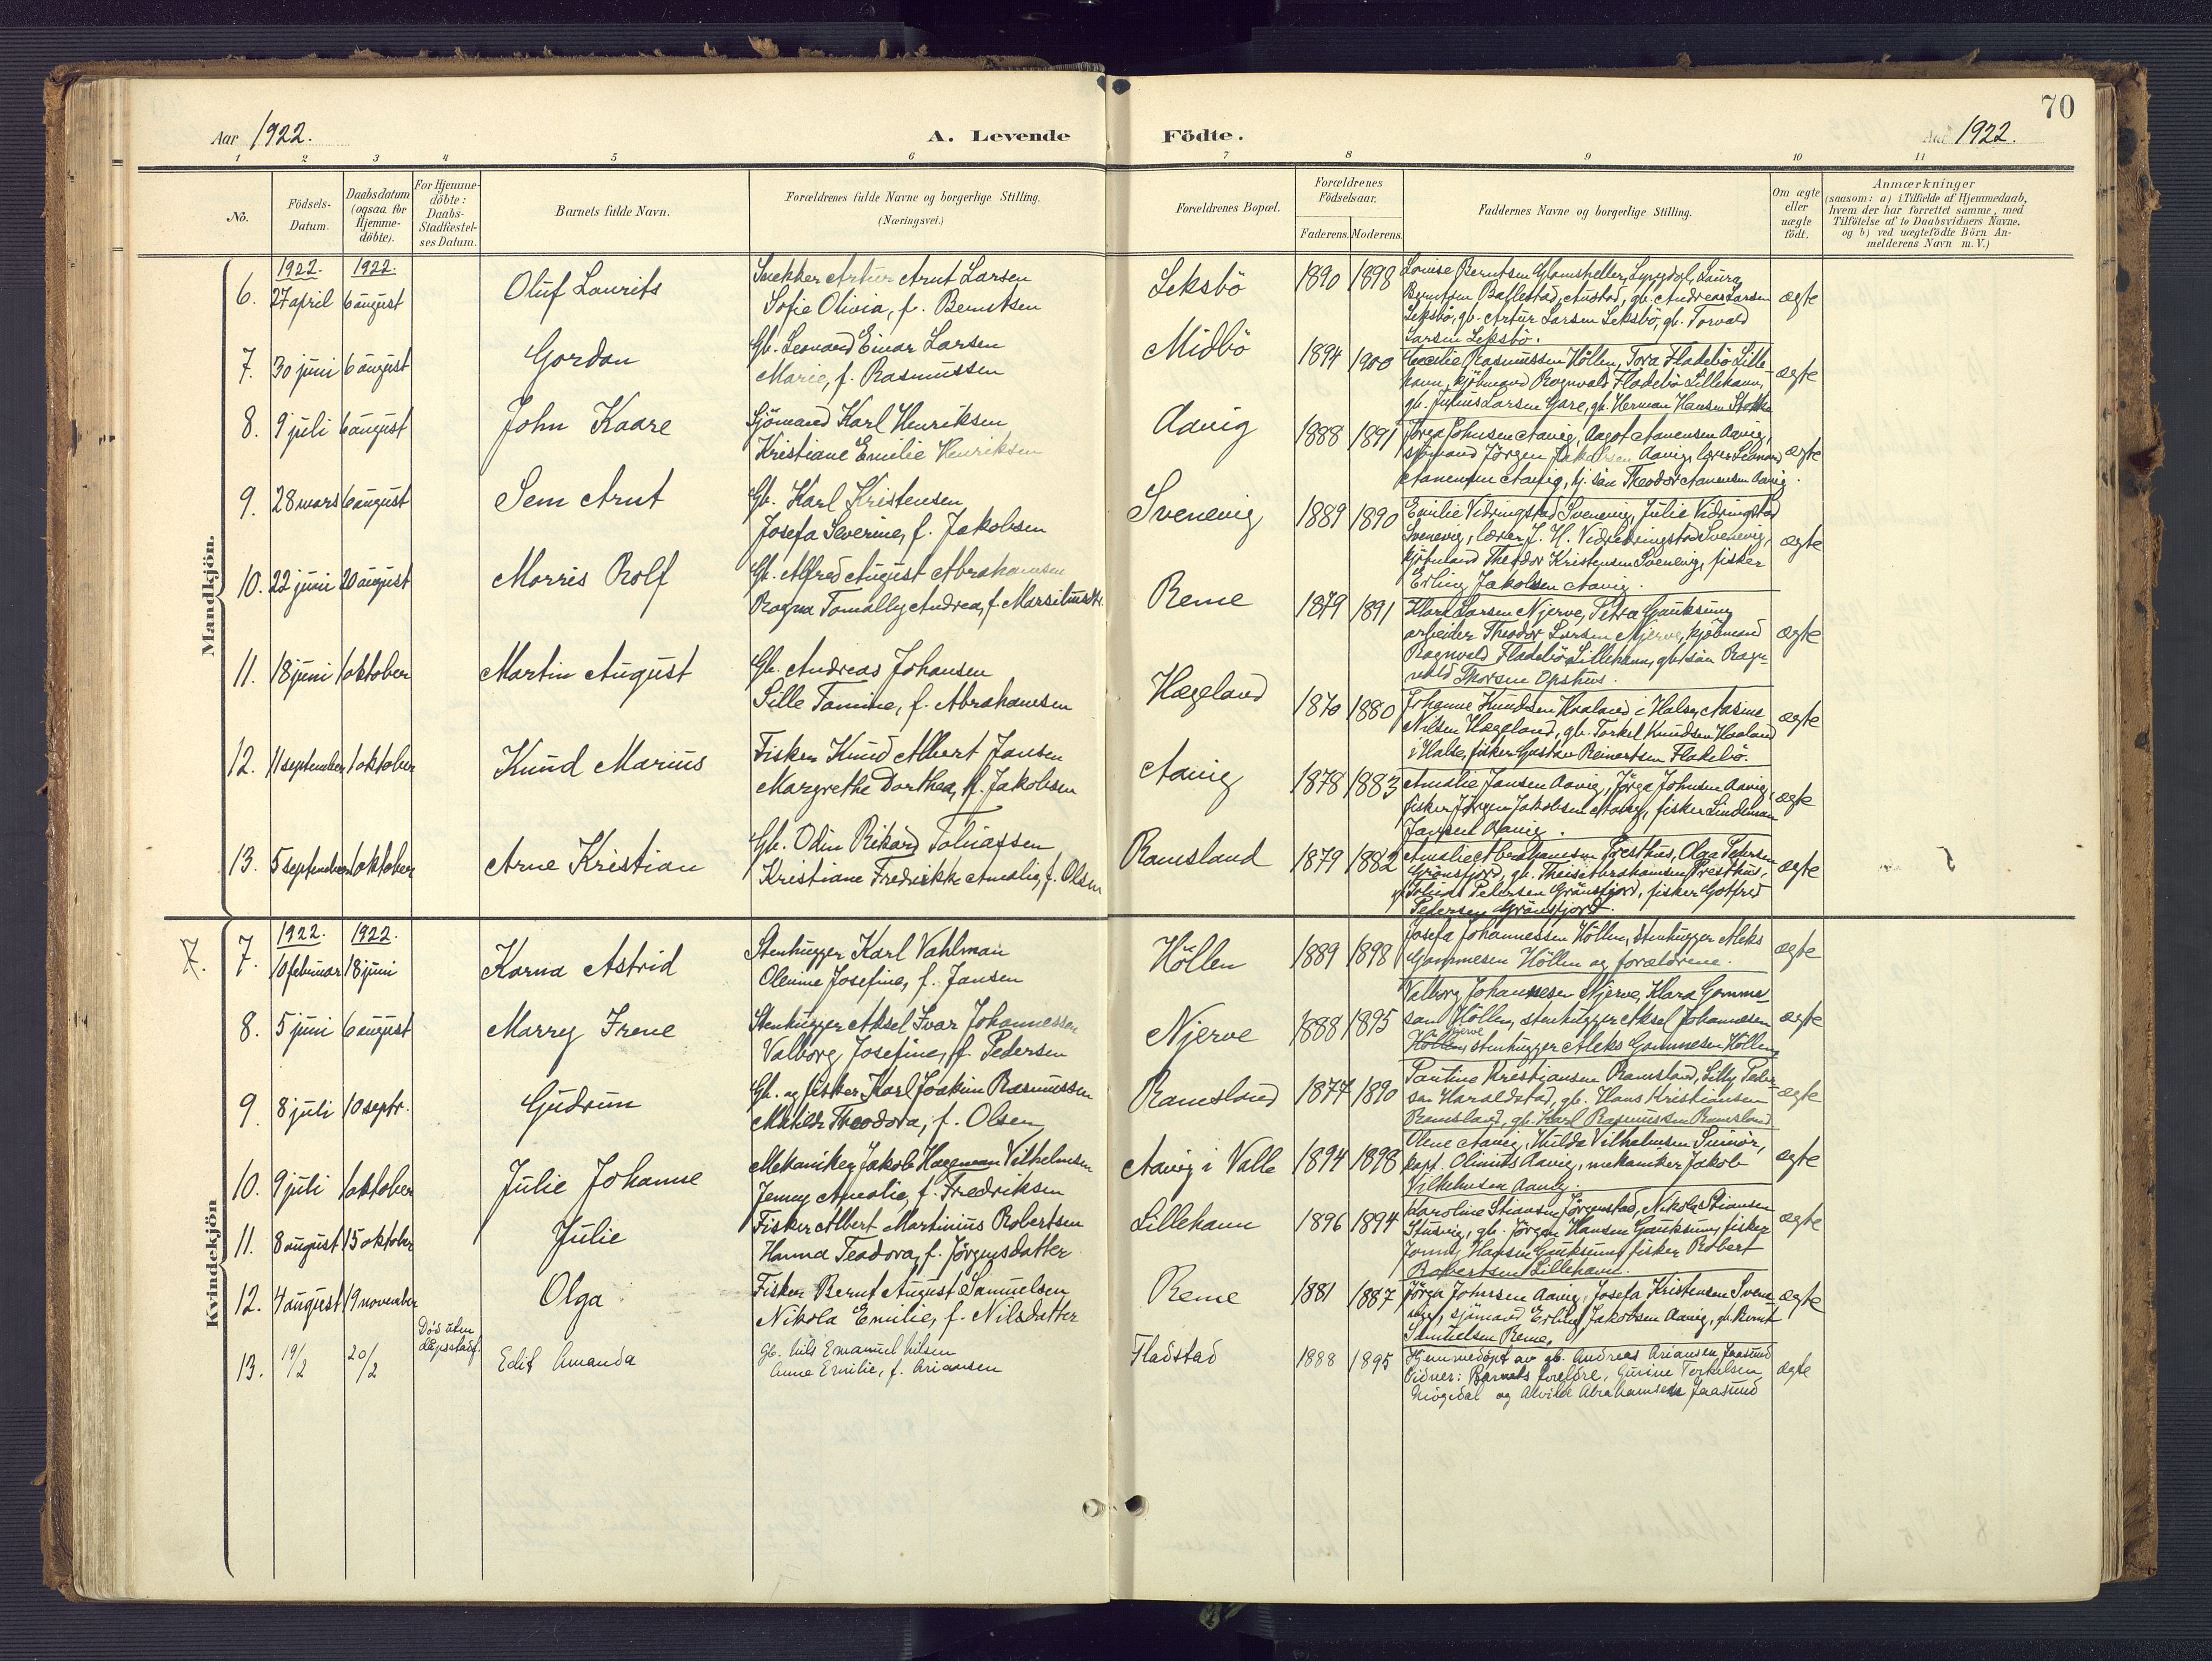 70
Aar 1922.
A. Levende Födte.
Aar 1922.
1 2 3 4 5 6 7 8 9 10 11
No.
Födsels-Datum.
Daabsdatum (ogsaa for Hjemme-döbte).
For Hjemme-döbte: Daabs-Stadfæstel-ses Datum.
Barnets fulde Navn.
Forældrenes fulde Navne og borgerlige Stilling.
(Næringsvei.)
Forældrenes Bopæl.
Forældrenes Födselsaar.
Faderens. Moderens.
Faddernes Navne og borgerlige Stilling.
Om ægte eller uægte födt.
Anmærkninger
(saasom: a) i Tilfælde af Hjemmedaab,
hvem der har forrettet samme, med
Tilföielse af to Daabsvidners Navne,
og b) ved uægtefödte Börn An-
melderens Navn m. V.)
Mandkjön.
1922. 1922.
6. 27 april 6 august Oluf Laurits
Snekker Artur Arnt Larsen
Sofie Olivia, f. Berntsen
Leksbö 1890 1898
Louise Berntsen Lyngdal, Laura
Berntsen Austad, gb. Andreas Larsen
Leksbö, gb. Artur Larsen Leksbö, gb. Torvald
Larsen Leksbö.
ægte
7. 30 juni 6 august Gordon
Gb. Leonard Einar Larsen
Marie, f. Rasmussen
Midbö 1894 1900
Cecilie Rasmussen Höllen, Tora Fladebö Lille-
havn, kjöbmand Ragnvald Fladebö Lillehavn,
gb. Julius Larsen Gare, gb. Herman Hansen
ægte
8. 9 juli 6 august John Kaare
Sjömand Karl Henriksen
Kristiane Emilie Henriksen
Aavig 1888 1891
Jörga Johnsen Aavig, Aagot Aanensen Aavig,
sjömand Jörgen Jakobsen Aavig,
Aanensen Aavig, Theodor Aanensen Aavig.
ægte
9. 28 mars 6 august Sem Arnt
Gb. Karl Kristensen
Josefa Severine, f. Jakobsen
Svenevig 1889 1890
Emilie Vidringstad Svenevig, Julie Vidringstad
Svenevig, lærer J. H. Svenevig,
kjöbmand Theodor Kristensen Svenevig, fisker
Erling Jakobsen Aavig.
ægte
10. 22 juni 20 august Morris Rolf
Gb. Alfred August Abrahamsen
Ragna Tomally Andrea, f.
Reme 1879 1891
Klara Larsen Njerve, Petra Gauksum
arbeider Theodor Larsen Njerve, kjöbmand
Ragnvald Fladebö Lillehavn, gb. sön Ragn-
vald Thorsen Opshus.
ægte
11. 18 juni 1 oktober Martin August
Gb. Andreas Johansen
Sille Tomine, f. Abrahamsen
Hægeland 1870 1880
Johanne Knudsen Haaland i Halse, Aasine
Nilsen Hægeland, gb. Torkel Knudsen Haaland
i Halse, fisker Gustav Reinertsen Fladebö.
ægte
12. 11 september 1 oktober Knud Marius
Fisker Knud Albert Jansen
Margrethe Dorthea, f. Jakobsen
Aavig 1878 1883
Amalie Jansen Aavig, Jörga Johnsen Aavig,
fisker Jörgen Jakobsen Aavig, fisker Lindeman
Jansen Aavig.
ægte
13. 5 september 1 oktober Arne Kristian
Gb. Odin Rikard Tobiassen
Kristiane Fredrikke Amalie, f. Olsen
Ramsland 1879 1882
Amalie Abrahamsen Presthus, Olga Petersen
Grönsfjord, gb. Theis Abrahamsen Presthus,
Tobias Petersen Grönsfjord, fisker Gotfred
Petersen Grönsfjord.
ægte
Kvindekjön
1922. 1922.
7. 7. 10 februar 18 juni Karna Astrid
Stenhugger Karl Vahlman
Olenne Josefine, f. Jansen
Höllen 1889 1898
Josefa Johannessen Höllen, stenhugger Aleks
Gommesen Höllen og forældrene.
ægte
8. 5 juni 6 august Marry Irene
Stenhugger Aksel Ivar Johannessen
Valborg Josefine, f. Pedersen
Njerve 1888 1895
Valborg Johannesen Njerve, Klara Gomme-
sen Höllen, stenhugger Aksel Johannesen
Njerve
Höllen, stenhugger Aleks Gommesen Höllen
ægte
9. 8 juli 10 septr. Gudrun
Gb. og fisker Karl Joakim Rasmussen
Mathilde Theodora, f. Olsen
Ramsland 1877 1890
Pautine Kristjansen Ramsland, Lilly Peder-
sen Haraldstad, gb. Hans Kristiansen
Ramsland, gb. Karl Rasmussen Ramsland
ægte
10. 9 juli 1 oktober Julie Johanne
Mekaniker Jakob Hageman Vilhelmsen
Jenny Amalie, f. Fredriksen
Aavig i Valle 1894 1898
Olene Aavig, Hulda Vilhelmsen Svinör,
kapt. Olinius Aavig, mekaniker Jakob
Vilhelmsen Aavig.
ægte
11. 8 august 15 oktober Julie
Fisker Albert Martinius Robertsen
Hanna Teodora, f. Jörgensdatter
Lillehavn 1896 1894
Karoline Stiansen Jörgenstad, Nikola Stiansen
Stusvig, gb. Jörgen Hansen Gauksum, fisker
Jonny Hansen Gauksum, fisker Robert
Robertsen Lillehavn.
ægte
12. 4 august 19 november Olga
Fisker Bernt August Samuelsen
Nikola Emilie, f. Nilsdatter
Reme 1881 1887
Jörga Johnsen Aavig, Josefa Kristensen Svene-
vig, sjömand Erling Jakobsen Aavig, gb. Bernt
Samuelsen Reme.
ægte
13. 19/2 20/2 Död uten dåpsstadf. Edit Amanda
Gb. Nils Emanuel Nilsen
Anne Emilie, f. Ariansen
Fladstad 1888 1895
Hjemmedöpt av gb. Andreas Ariansen Jaasund
Vidner: Barnets foreldre, Gurine Torkelsen
og Alvilde Abrahamsen Jaasund
ægte